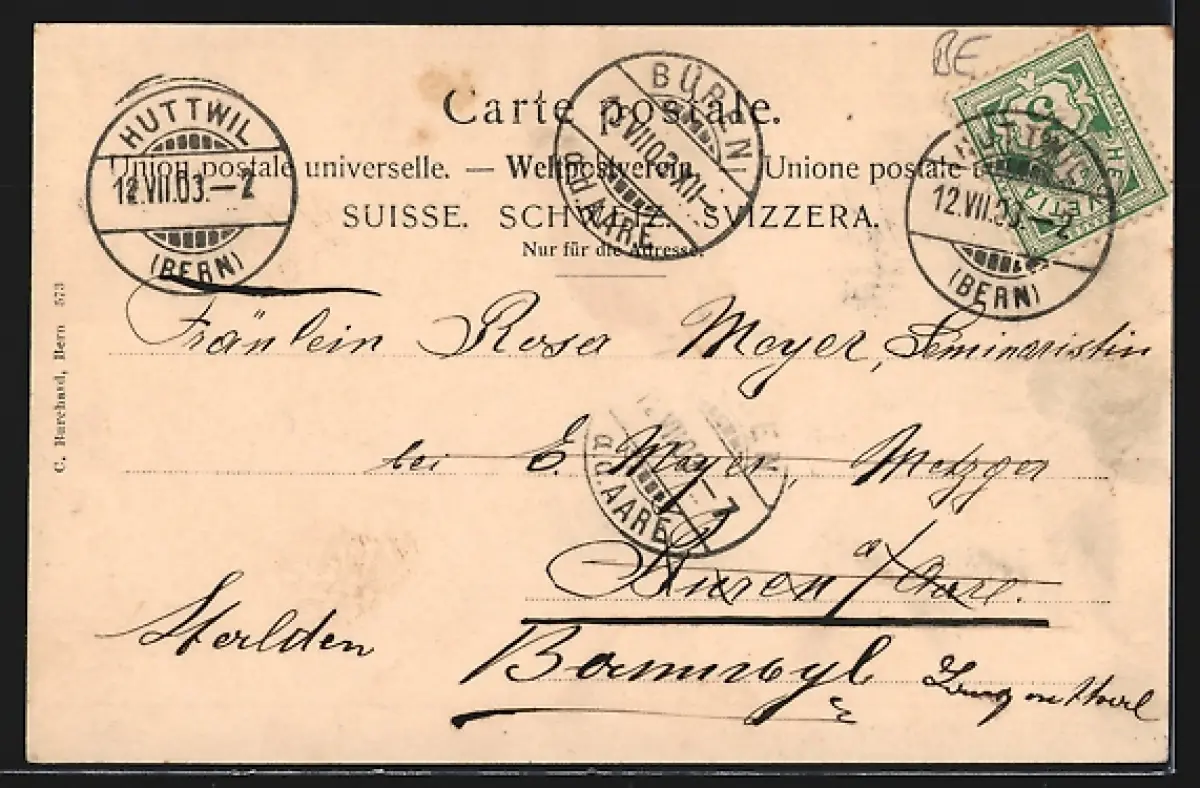 BE
Carte postale.
Union postale universelle. — Weltpostverein. — Unione postale
SUISSE. SCHWEIZ. SVIZZERA.
Nur für die Adresse.
HUTTWIL
12.VII.03.–2
(BERN)
BÜREN
VII 03 XII–
a.d. AARE
HELVETIA
5
HUTTWIL
12.VII.03.–2
(BERN)
C. Burchard, Bern 573
Fräulein Rosa Meyer, Seminaristin
bei E. Meyer, Metzger
EN
–7
a.d. AARE
Büren a/Aare.
Stalden